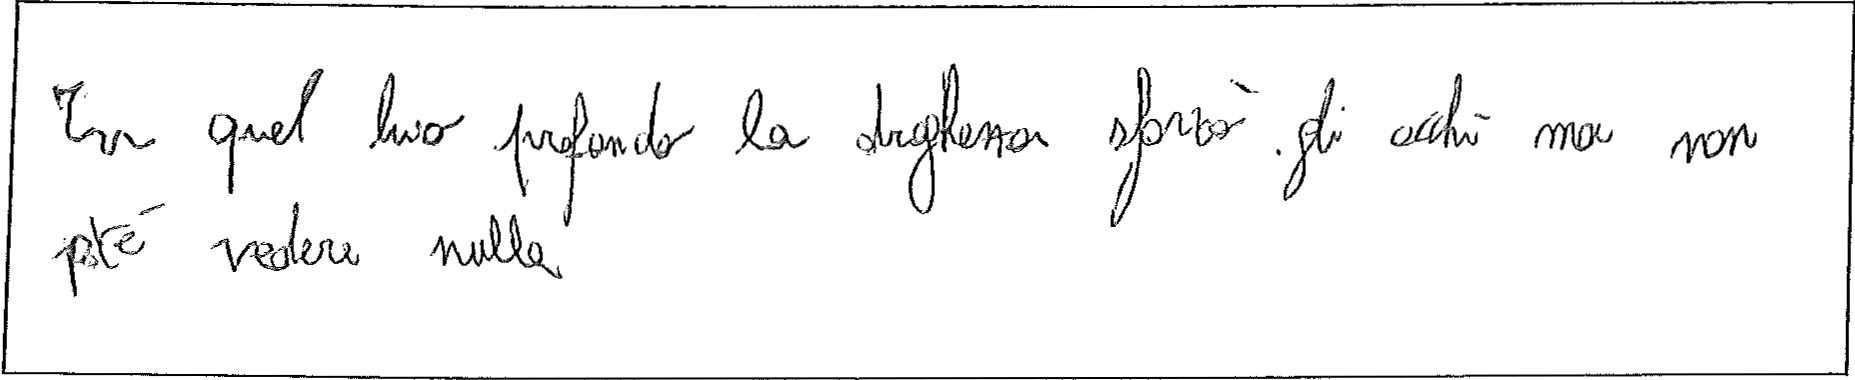 In quel buio profondo la sforzò gli occhi ma non
poté vedere nulla